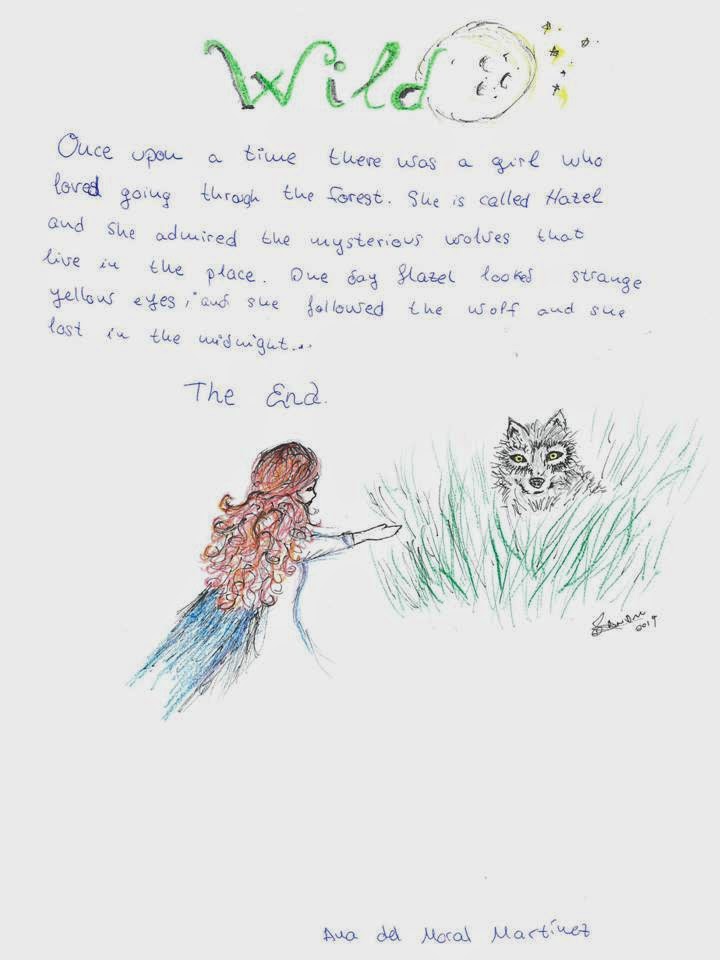 Wild
Once upon a time there was a girl who
loved going through the forest. She is called Hazel
and she admired the mysterious wolves that
live in the place. One day Hazel looked strange
yellow eyes, and she followed the wolf and she
lost in the midnight...
The End.
Ana del Moral Martínez